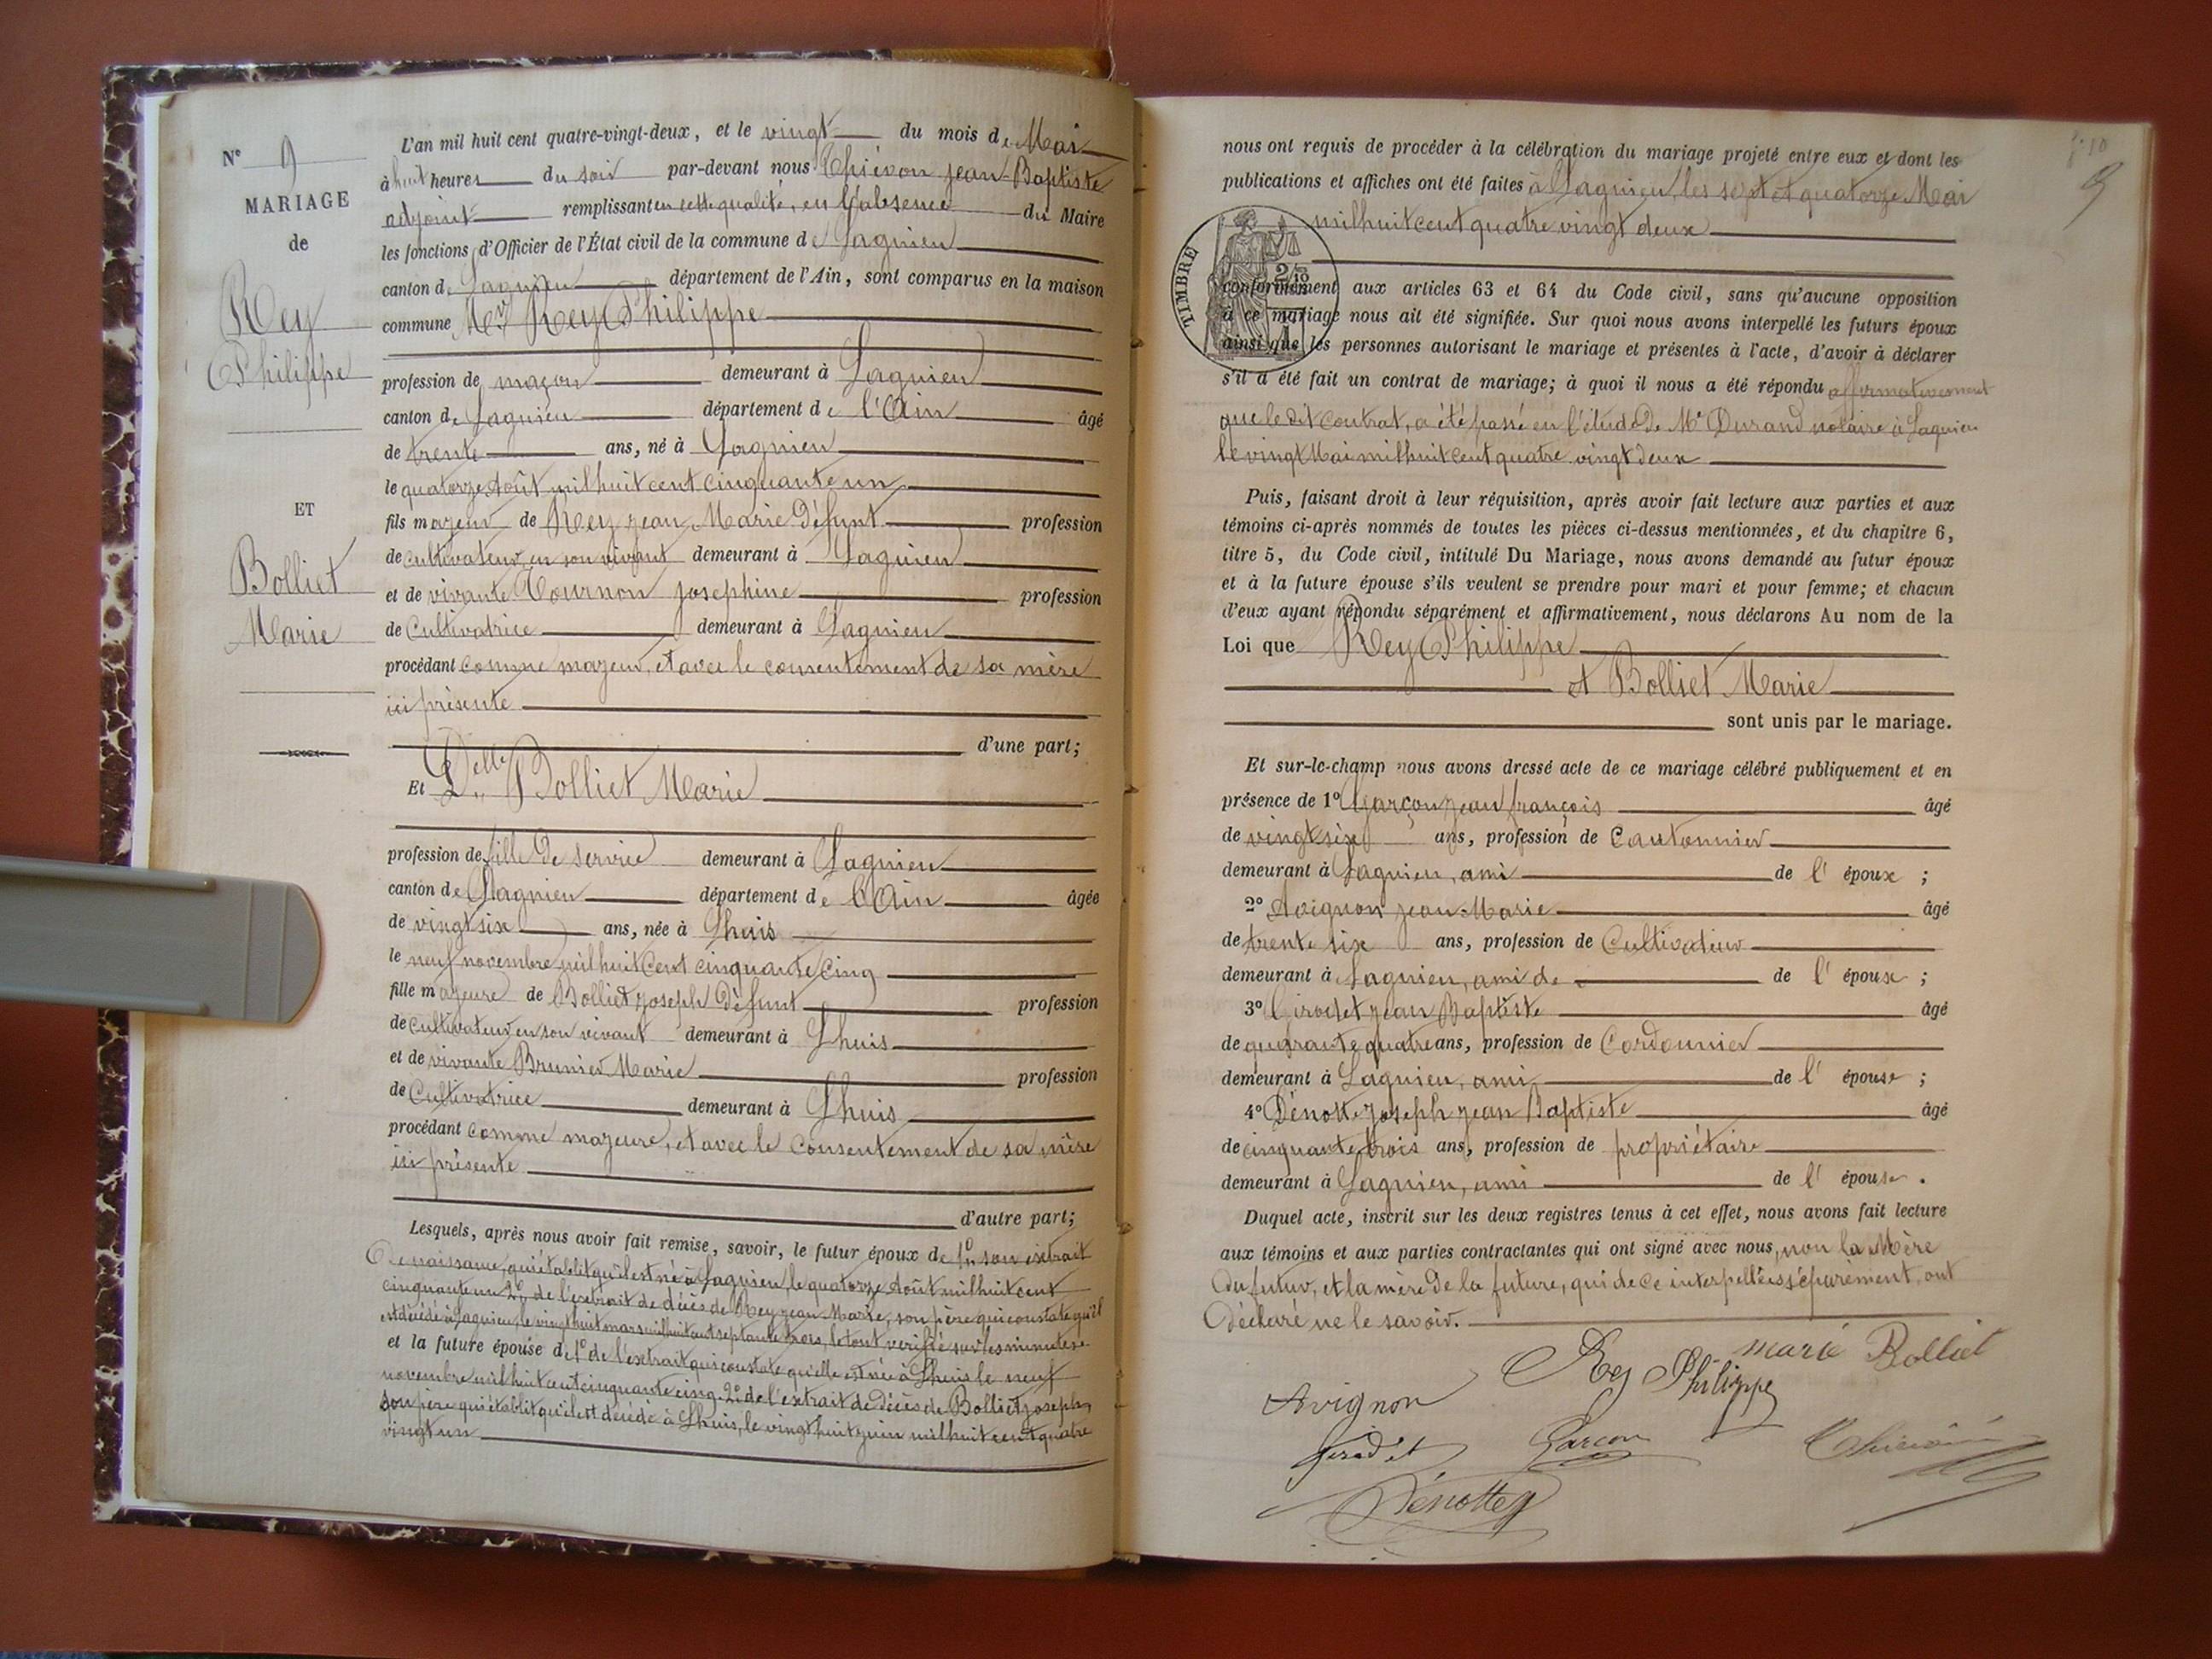 N° 9
MARIAGE
de
Rey
Philippe
ET
Bolliet
Marie
L'an mil huit cent quatre-vingt-deux, et le vingt du mois de Mai
à huit heures du soir par-devant nous Jean-Baptiste
adjoint remplissant en cette qualité, en l'absence du Maire
les fonctions d'Officier de l'État civil de la commune de Lagnieu
canton de Lagnieu département de l'Ain, sont comparus en la maison
commune Mr Rey Philippe
profession de maçon demeurant à Lagnieu
canton de Lagnieu département de l'Ain âgé
de trente ans, né à Lagnieu
le quatorze Août mil huit cent cinquante un
fils majeur de Rey Jean Marie défunt profession
de cultivateur en son vivant demeurant à Lagnieu
et de vivante Tournon Josephine profession
de Cultivatrice demeurant à Lagnieu
procédant comme majeur, et avec le consentement de sa mère
ici présente
d'une part;
Et Delle Bolliet Marie
profession de fille de service demeurant à Lagnieu
canton de Lagnieu département de l'Ain âgée
de vingt six ans, née à Lhuis
le neuf novembre mil huit cent cinquante cinq
fille majeure de Bolliet Joseph défunt profession
de cultivateur en son vivant demeurant à Lhuis
et de vivante Brunier Marie profession
de Cultivatrice demeurant à Lhuis
procédant comme majeure, et avec le consentement de sa mère
ici présente
d'autre part;
Lesquels, après nous avoir fait remise, savoir, le futur époux de 1° son extrait
de naissance, qui établit qu'il est né à Lagnieu, le quatorze Août mil huit cent
cinquante un 2° de l'extrait de décès de Rey Jean Marie, son père qui constate qu'il
est décédé à Lagnieu, le vingt huit mars mil huit cent septante trois, le tout vérifié sur les minutes
et la future épouse de 1° de l'extrait qui constate qu'elle est née à Lhuis le neuf
novembre mil huit cent cinquante cinq 2° de l'extrait de décès de Bolliet Joseph,
son père qui établit qu'il est décédé à Lhuis, le vingt huit juin mil huit cent quatre
vingt un
9
nous ont requis de procéder à la célébration du mariage projeté entre eux et dont les
publications et affiches ont été faites à Lagnieu, les sept et quatorze Mai
mil huit cent quatre vingt deux
TIMBRE
conformément aux articles 63 et 64 du Code civil, sans qu'aucune opposition
à ce mariage nous ait été signifiée. Sur quoi nous avons interpellé les futurs époux
ainsi que les personnes autorisant le mariage et présentes à l'acte, d'avoir à déclarer
s'il a été fait un contrat de mariage; à quoi il nous a été répondu affirmativement
que le dit contrat, a été passé en l'étude de Me Durand notaire à Lagnieu
le vingt Mai mil huit cent quatre vingt deux
Puis, faisant droit à leur réquisition, après avoir fait lecture aux parties et aux
témoins ci-après nommés de toutes les pièces ci-dessus mentionnées, et du chapitre 6,
titre 5, du Code civil, intitulé Du Mariage, nous avons demandé au futur époux
et à la future épouse s'ils veulent se prendre pour mari et pour femme; et chacun
d'eux ayant répondu séparément et affirmativement, nous déclarons Au nom de la
Loi que Rey Philippe
et Bolliet Marie
sont unis par le mariage.
Et sur-le-champ nous avons dressé acte de ce mariage célébré publiquement et en
présence de 1° Garçon Jean françois âgé
de vingt six ans, profession de Cantonnier
demeurant à Lagnieu, ami de l' époux ;
2° Avignon Jean-Marie âgé
de trente six ans, profession de Cultivateur
demeurant à Lagnieu, ami de de l' époux ;
3° Girodet Jean Baptiste âgé
de quarante quatre ans, profession de Cordonnier
demeurant à Lagnieu, ami de l' épouse ;
4° Dénotte Joseph Jean Baptiste âgé
de cinquante trois ans, profession de propriétaire
demeurant à Lagnieu, ami de l' épouse .
Duquel acte, inscrit sur les deux registres tenus à cet effet, nous avons fait lecture
aux témoins et aux parties contractantes qui ont signé avec nous, non la Mère
du futur, et la mère de la future, qui de ce interpellées séparément, ont
déclaré ne le savoir.
marie Bolliet
Rey Philippe
Avignon
Girodet Garçon